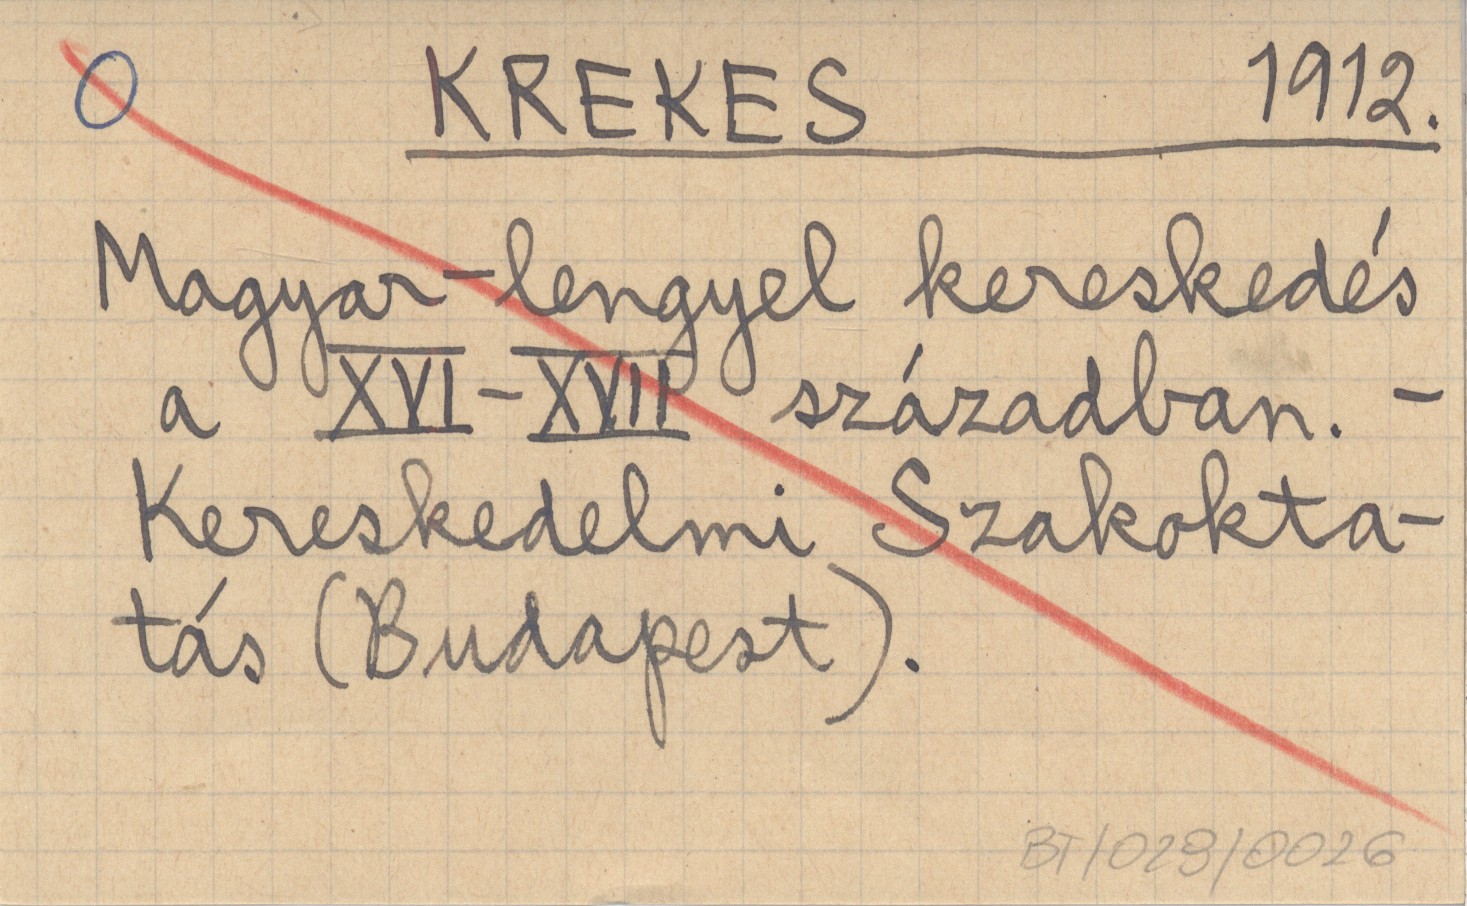 O KREKES 1912.
Magyar-lengyel kereskedés
a XVI-XVII században. -
Kereskedelmi Szakokta-
tás (Budapest).
BT/029/0026